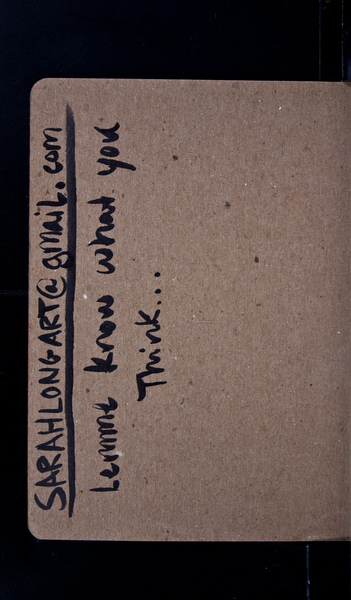 SARAHLONGART@gmail.com
Lemme know what you
Think...